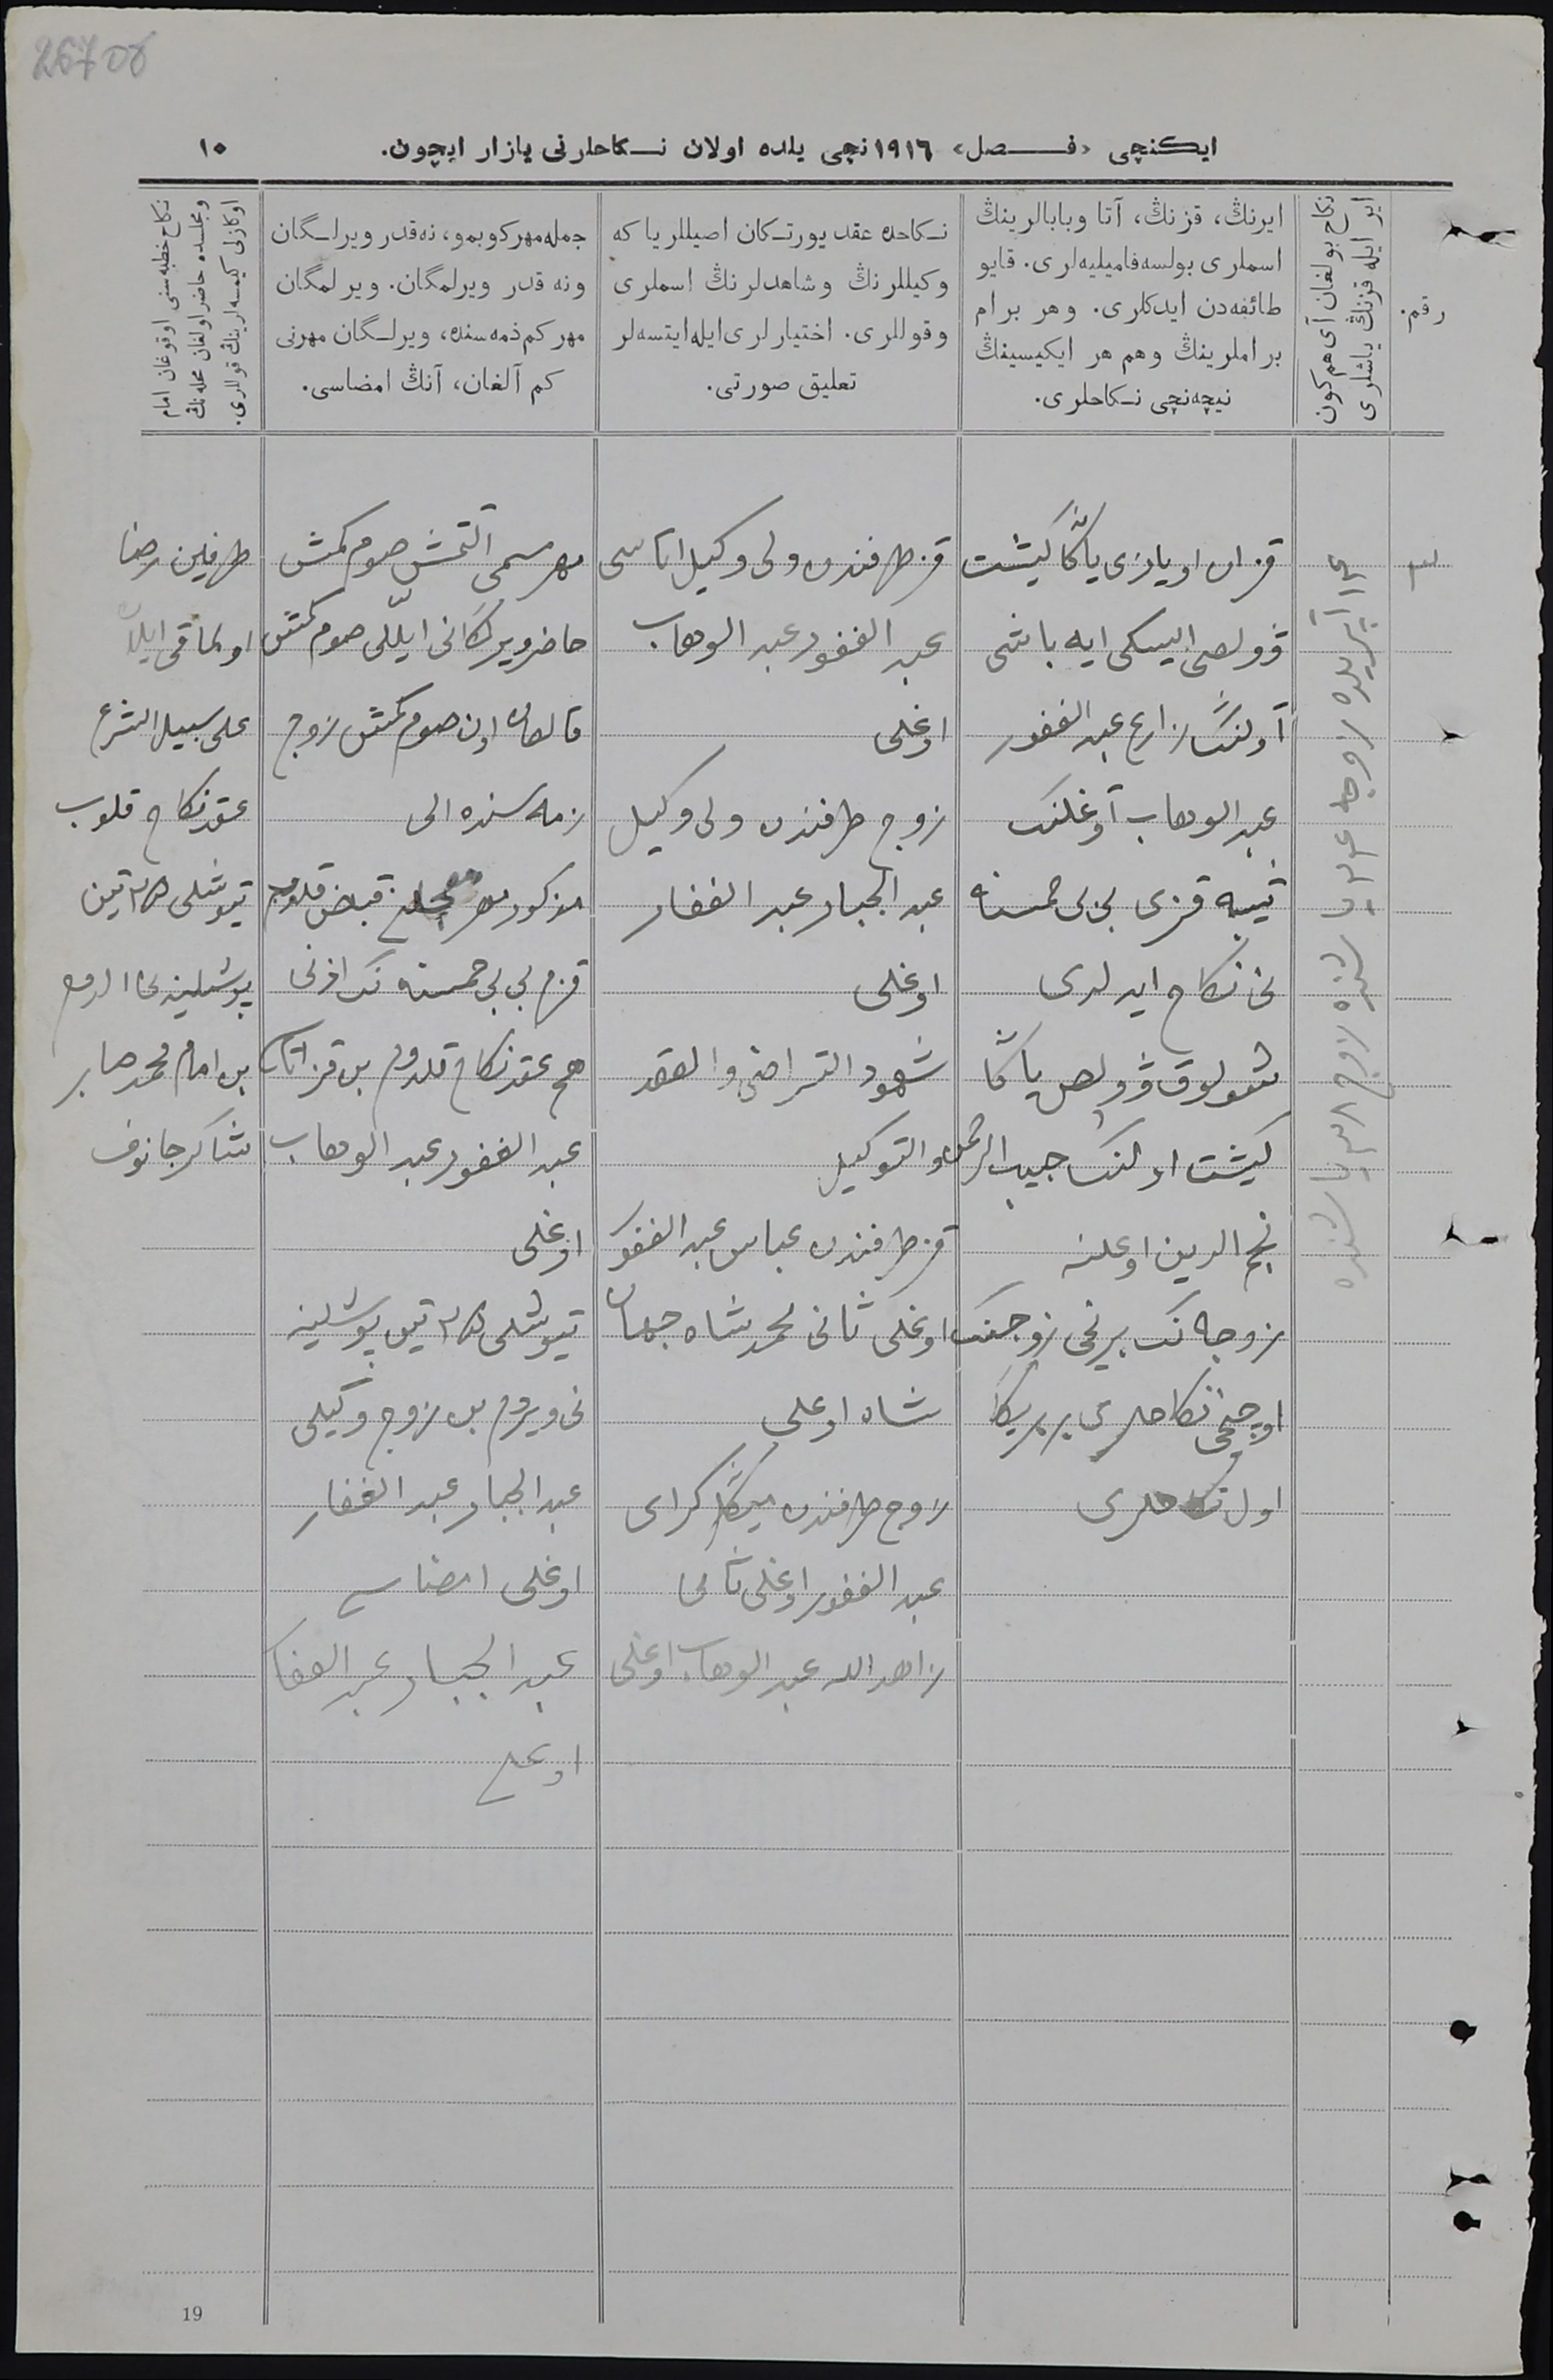 26708
ایكنچی «فصل» ١٩١٦ نچی یلده اولان نكاحلرنی یازار ایچون.
١٠
رقم.
نكاح بولغان آی هم كون
ایر ایله قزنڭ یاشلری
ایرنڭ، قزنڭ، آتا وبابالرینڭ
اسملری بولسه فامیلیه‌لری. قایو
طائفه‌دن ایدكلری. وهر برام
براملرینڭ وهم هر ایكیسینڭ
نیچه‌نچی نكاحلری.
نكاحده عقد یورتكان اصیللر یا كه
وكیللرنڭ وشاهدلرنڭ اسملری
وقوللری. اختیارلری ایله ایتسه‌لر
تعلیق صورتی.
جمله مهر كوبمو، نه‌قدر ویرلگان
ونه قدر ویرلمگان. ویرلمگان
مهر كم ذمه‌سنده، ویرلگان مهرنی
كم آلغان، آنڭ امضاسی.
نكاح خطبه‌سنی اوقوغان امام
ومجلسده حاضر اولغان محله‌نڭ
اوكازلی كیمسه‌لرینڭ قوللری.
٣
١٤ آپریلده زوجه ٢٤ یا شنده زوج ٣٨ یا شنده
قزان اویازی یاڭا كیشت
ڤولصی ایسكی ایه باشی
آولنڭ زارع عبد الغفور
عبد الوهاب آوغلنڭ
تیبه قزی بی بی حمسنه
نی نكاح ایدلدی
شولوق ڤولص یاڭا
كیشت اولنڭ حبیب الرحمن
نجم الدین اوغلنه
زوجه نڭ برنچی زوجنڭ
اوچنچی نكاحلری بربریگا
اول نكاحلری
قز طرفندن ولی وكیل اتاسی
عبد الغفور عبد الوهاب
اوغلی
زوج طرفندن ولی وكیل
عبد الجبار عبد الغفار
اوغلی
شهود التراضی والعقد
والتوكیل
قز طرفندن عباس عبد الغفور
اوغلی ثانی محمد شاه جهان
شاه اوغلی
زوج طرفندن میڭگرای
عبد الغفور اوغلی ثانی
زاهد الله عبد الوهاب اوغلی
مهر مسمی آلتمش صوم كمش
حاضر ویرلگانی ایللی صوم كمش
قالغان اون صوم كمش زوج
ذمه‌سنده الی
مذكور مهر معجلنی قبض قلدم
قزم بی بی حمسنه نڭ اذنی
هم عقد نكاح قلدم بن قز اتاسی
عبد الغفور عبد الوهاب
اوغلی
تیوشلی ٢٥ تین پوشلینه
نی ویردم بن زوج وكیلی
عبد الجبار عبد الغفار
اوغلی امضاسی
عبد الجبار عبد الغفار
اوغلی
طرفین رضا
اولماقی ایله
علی سبیل الشرع
عقد نكاح قلوب
تیوشلی ٢٥ تین
پوشلینه نی الدم
بن امام محمد صابر
شاكرجانوف
19